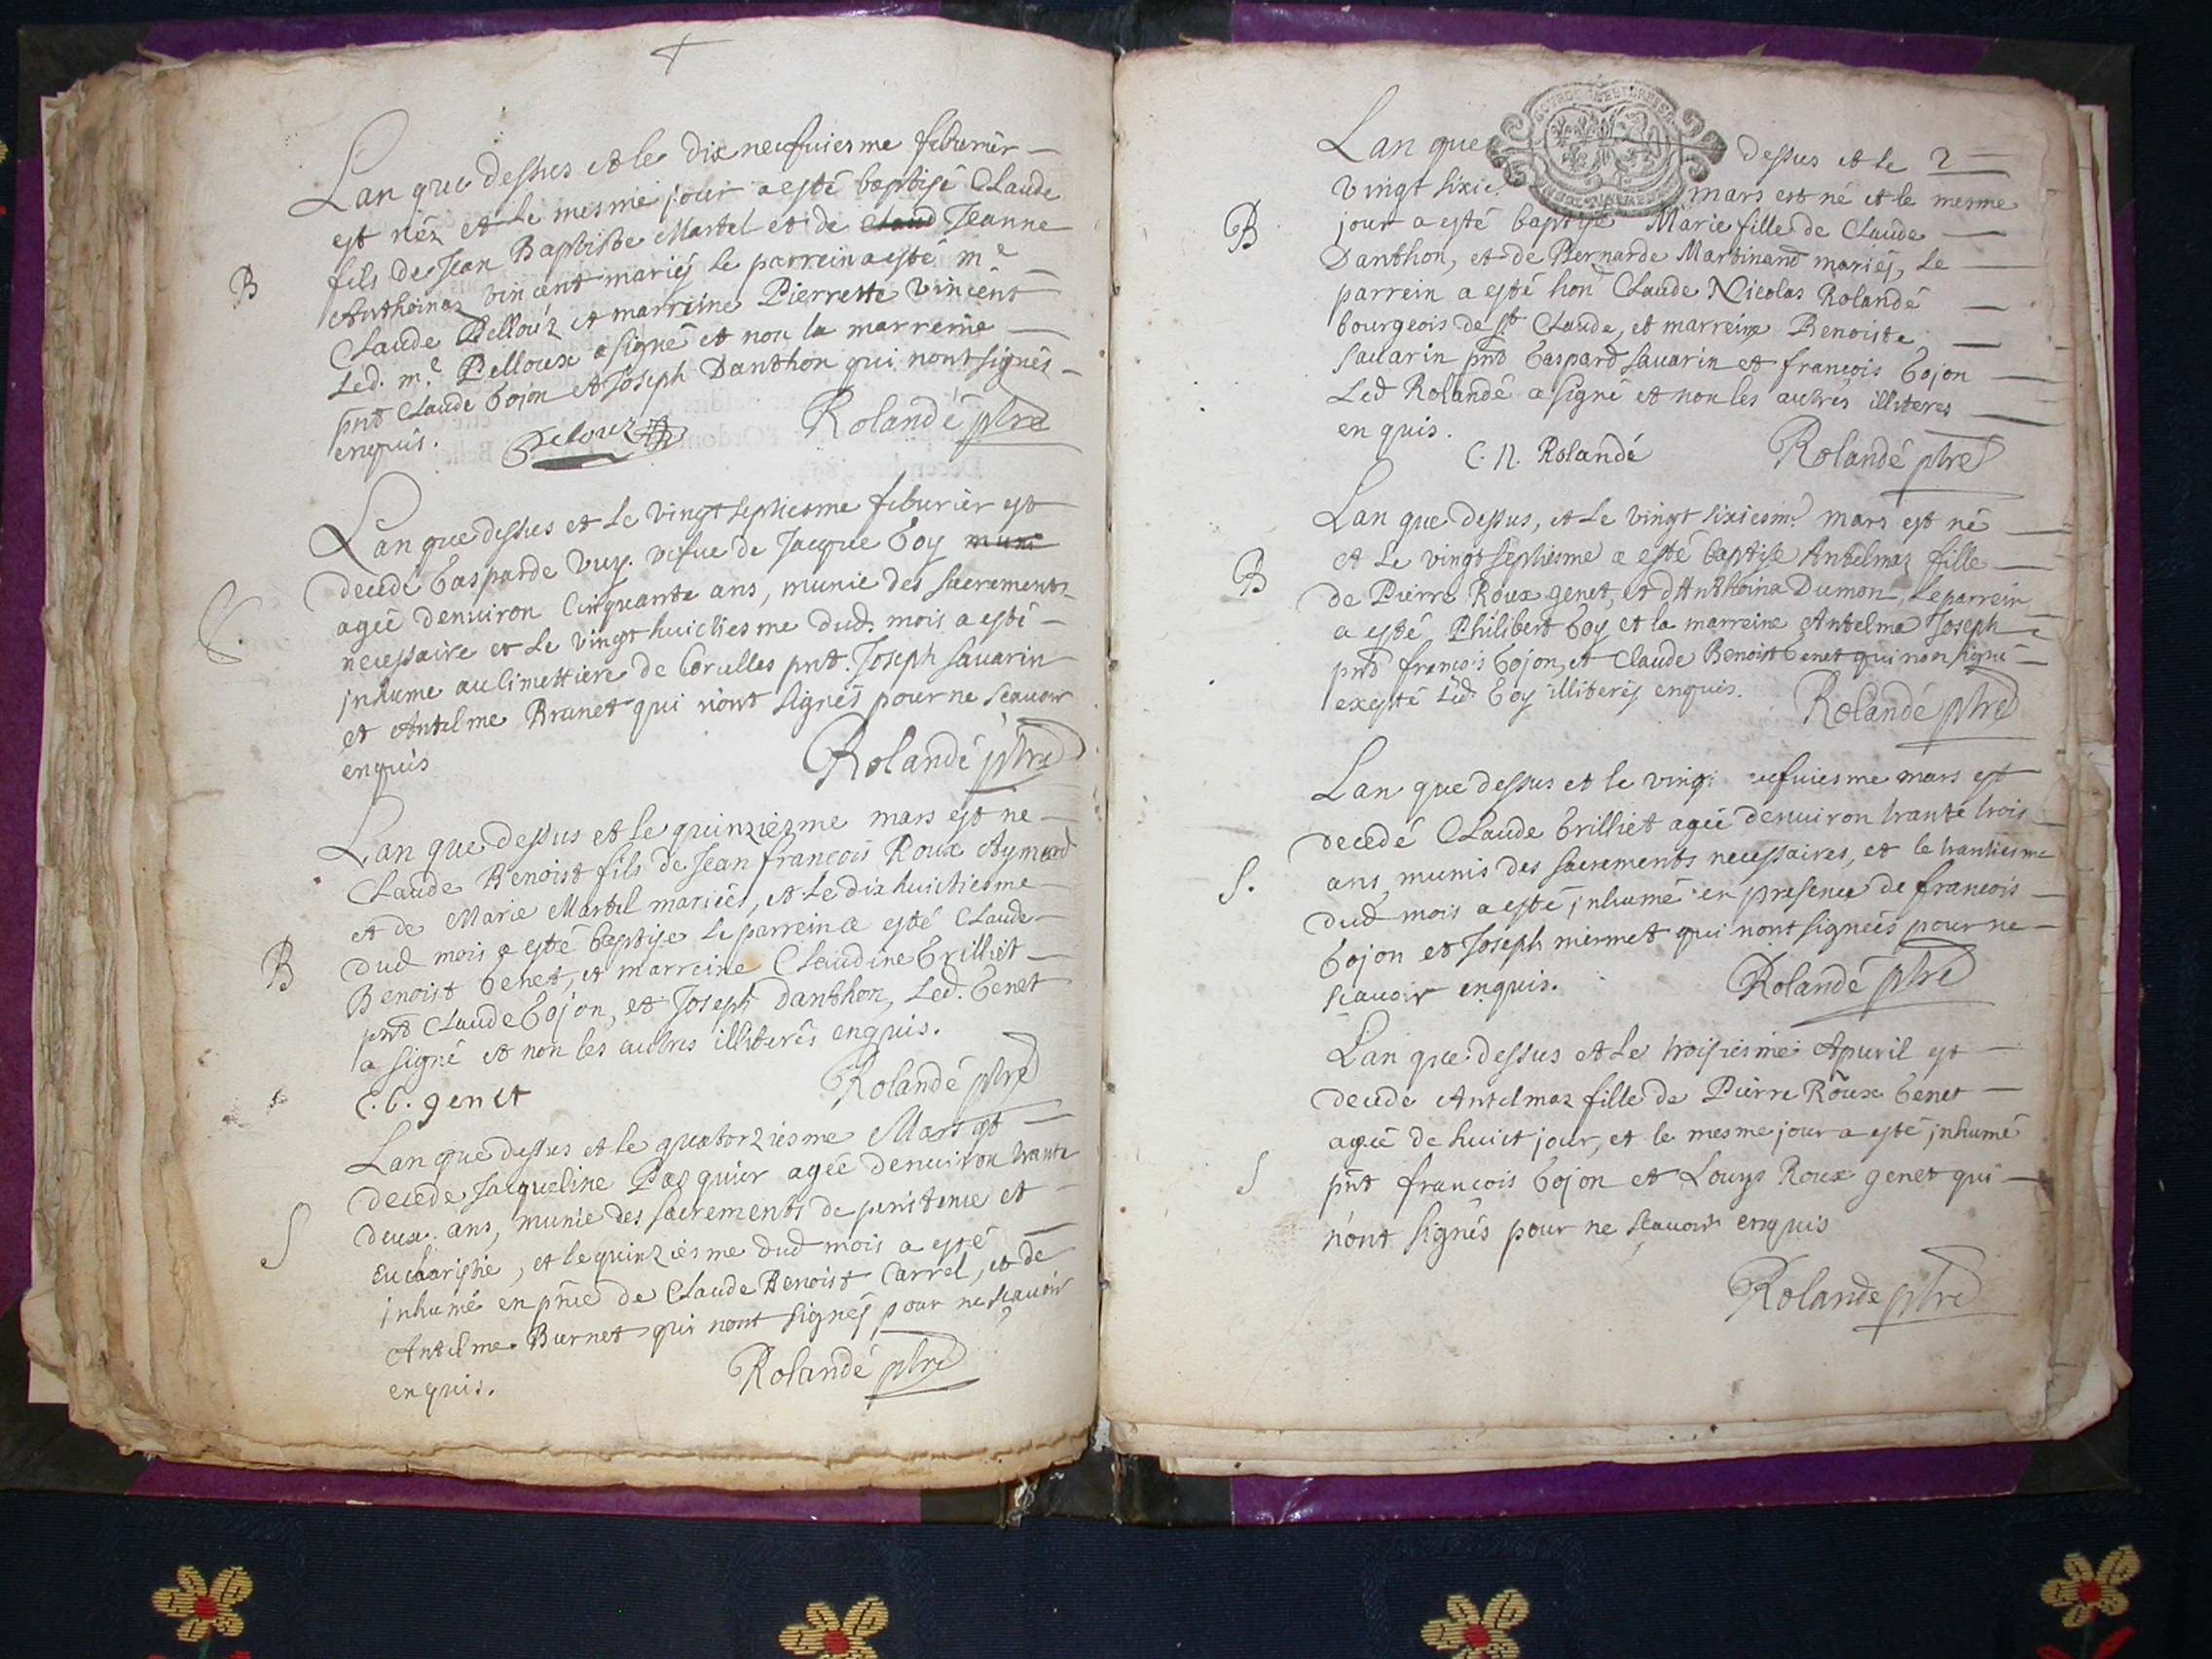 Lan que dessus et le dix neufuiesme feburier
est néz et le mesme jour a esté baptisé Claude
fils de Jean Baptiste Martel et de Jeanne
B
Anthoinaz vincent mariés le parrein a esté me
Claude Pellouz et marreine Pierrette vincent
Led. me. Pelloux a signé et non la marreine
pnt Claude Gojon et Joseph Danthon qui nont signés
enquis.
Pelouz
Rolandé ptre
Lan que dessus et le vingt septiesme feburier est
decedé Gasparde vuy. vefue de Jacque Goy
agée denuiron Cinquante ans, munie des sacrements
S.
necessaire et le vingt huictiesme dud. mois a esté
inhume au Cimettiere de Corcelles pnt. Joseph sauarin
et Antelme Brunet qui nont signés pour ne scauoir
enquis
Rolandé ptre
Lan que dessus et le quinziesme mars est ne
Claude Benoist fils de Jean francois Roux Aymard
et de Marie Martel mariés, et le dix huictiesme
B
dud mois a esté baptise le parrein a esté Claude
Benoist Genet, et marreine Claudine Grilliet
pnt Claude Gojon, et Joseph Danthon, Led. Genet
a signé et non les autres illiterés enquis.
C. b. genet
Rolandé ptre
Lan que dessus et le quatorziesme Mars est
decede Jacqueline Pasquier agée denuiron trante
deux. ans, munie des sacrements de penitence et
S
Eucharistie, et le quinziesme dud mois a esté
inhumé en pnce de Claude Benoist Carrel, et de
Antelme Burnet qui nont signés pour ne scauoir
enquis.
Rolandé ptre
Lan que dessus et le
vingt sixie mars est né et le mesme
B
jour a esté baptisé Marie fille de Claude
Danthon, et de Bernarde Martinand mariés, le
parrein a esté hon Claude Nicolas Rolandé
bourgeois de St Claude, et marreine Benoiste
sauarin pnt Gaspard sauarin et francois Gojon
Led Rolandé a signé et non les autres illiteres
enquis.
C. N. Rolandé
Rolandé ptre
Lan que dessus, et le vingt sixiesme mars est né
B
et le vingt septiesme a esté baptise Antelmaz fille
de Pierre Roux genet, et dAnthoina Dumon, le parrein
a esté Philibert Goy et la marreine Antelma Joseph
pnt francois Gojon, et Claude Benoist Genet qui non signé
exepté Led. Goy illiterés enquis.
Rolandé ptre
Lan que dessus et le vingt neufuiesme mars est
decedé Claude Grilliet agée denuiron trante trois
S.
ans, munis des sacrements necessaires, et le trantiesme
dud mois a esté inhumé en presence de francois
Gojon et Joseph mermet qui nont signeés pour ne
scauoir enquis.
Rolandé ptre
Lan que dessus et le troisiesme Apuril est
decede Antelmaz fille de Pierre Roux Genet
agée de huict jour, et le mesme jour a esté inhumé
S
pnt francois Gojon et Louys Roux genet qui
n'ont signés pour ne scauoir enquis
Rolande ptre